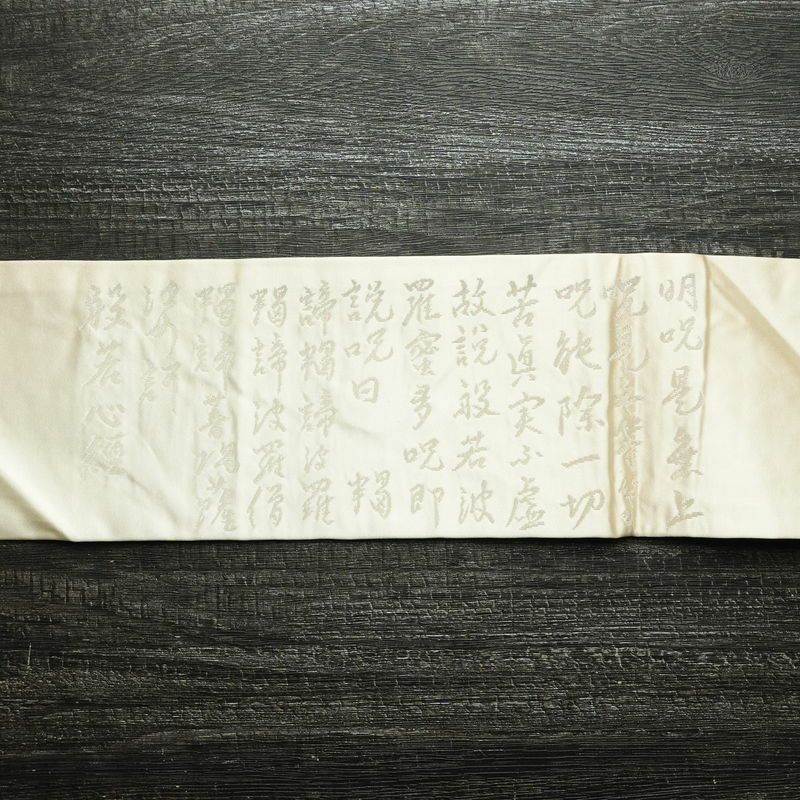 明呪是無上
呪是無等等
呪能除一切
苦真実不虚
故説般若波
羅蜜多呪即
説呪曰 羯
諦羯諦波羅
羯諦波羅僧
羯諦菩提薩
婆訶
般若心経